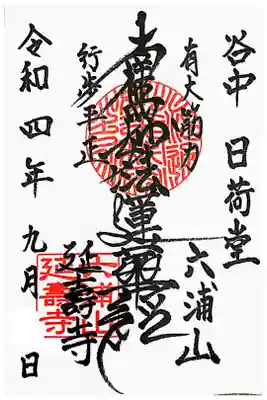 谷中 日荷堂
六浦山
有大筋力
南無妙法蓮華経
行歩平正
延壽寺
六浦山
延壽寺
令和四年 九月 日